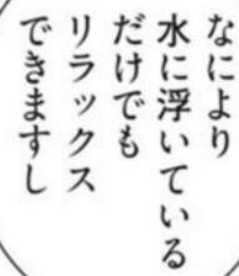 なにより
水に浮いている
だけでも
リラックス
できますし